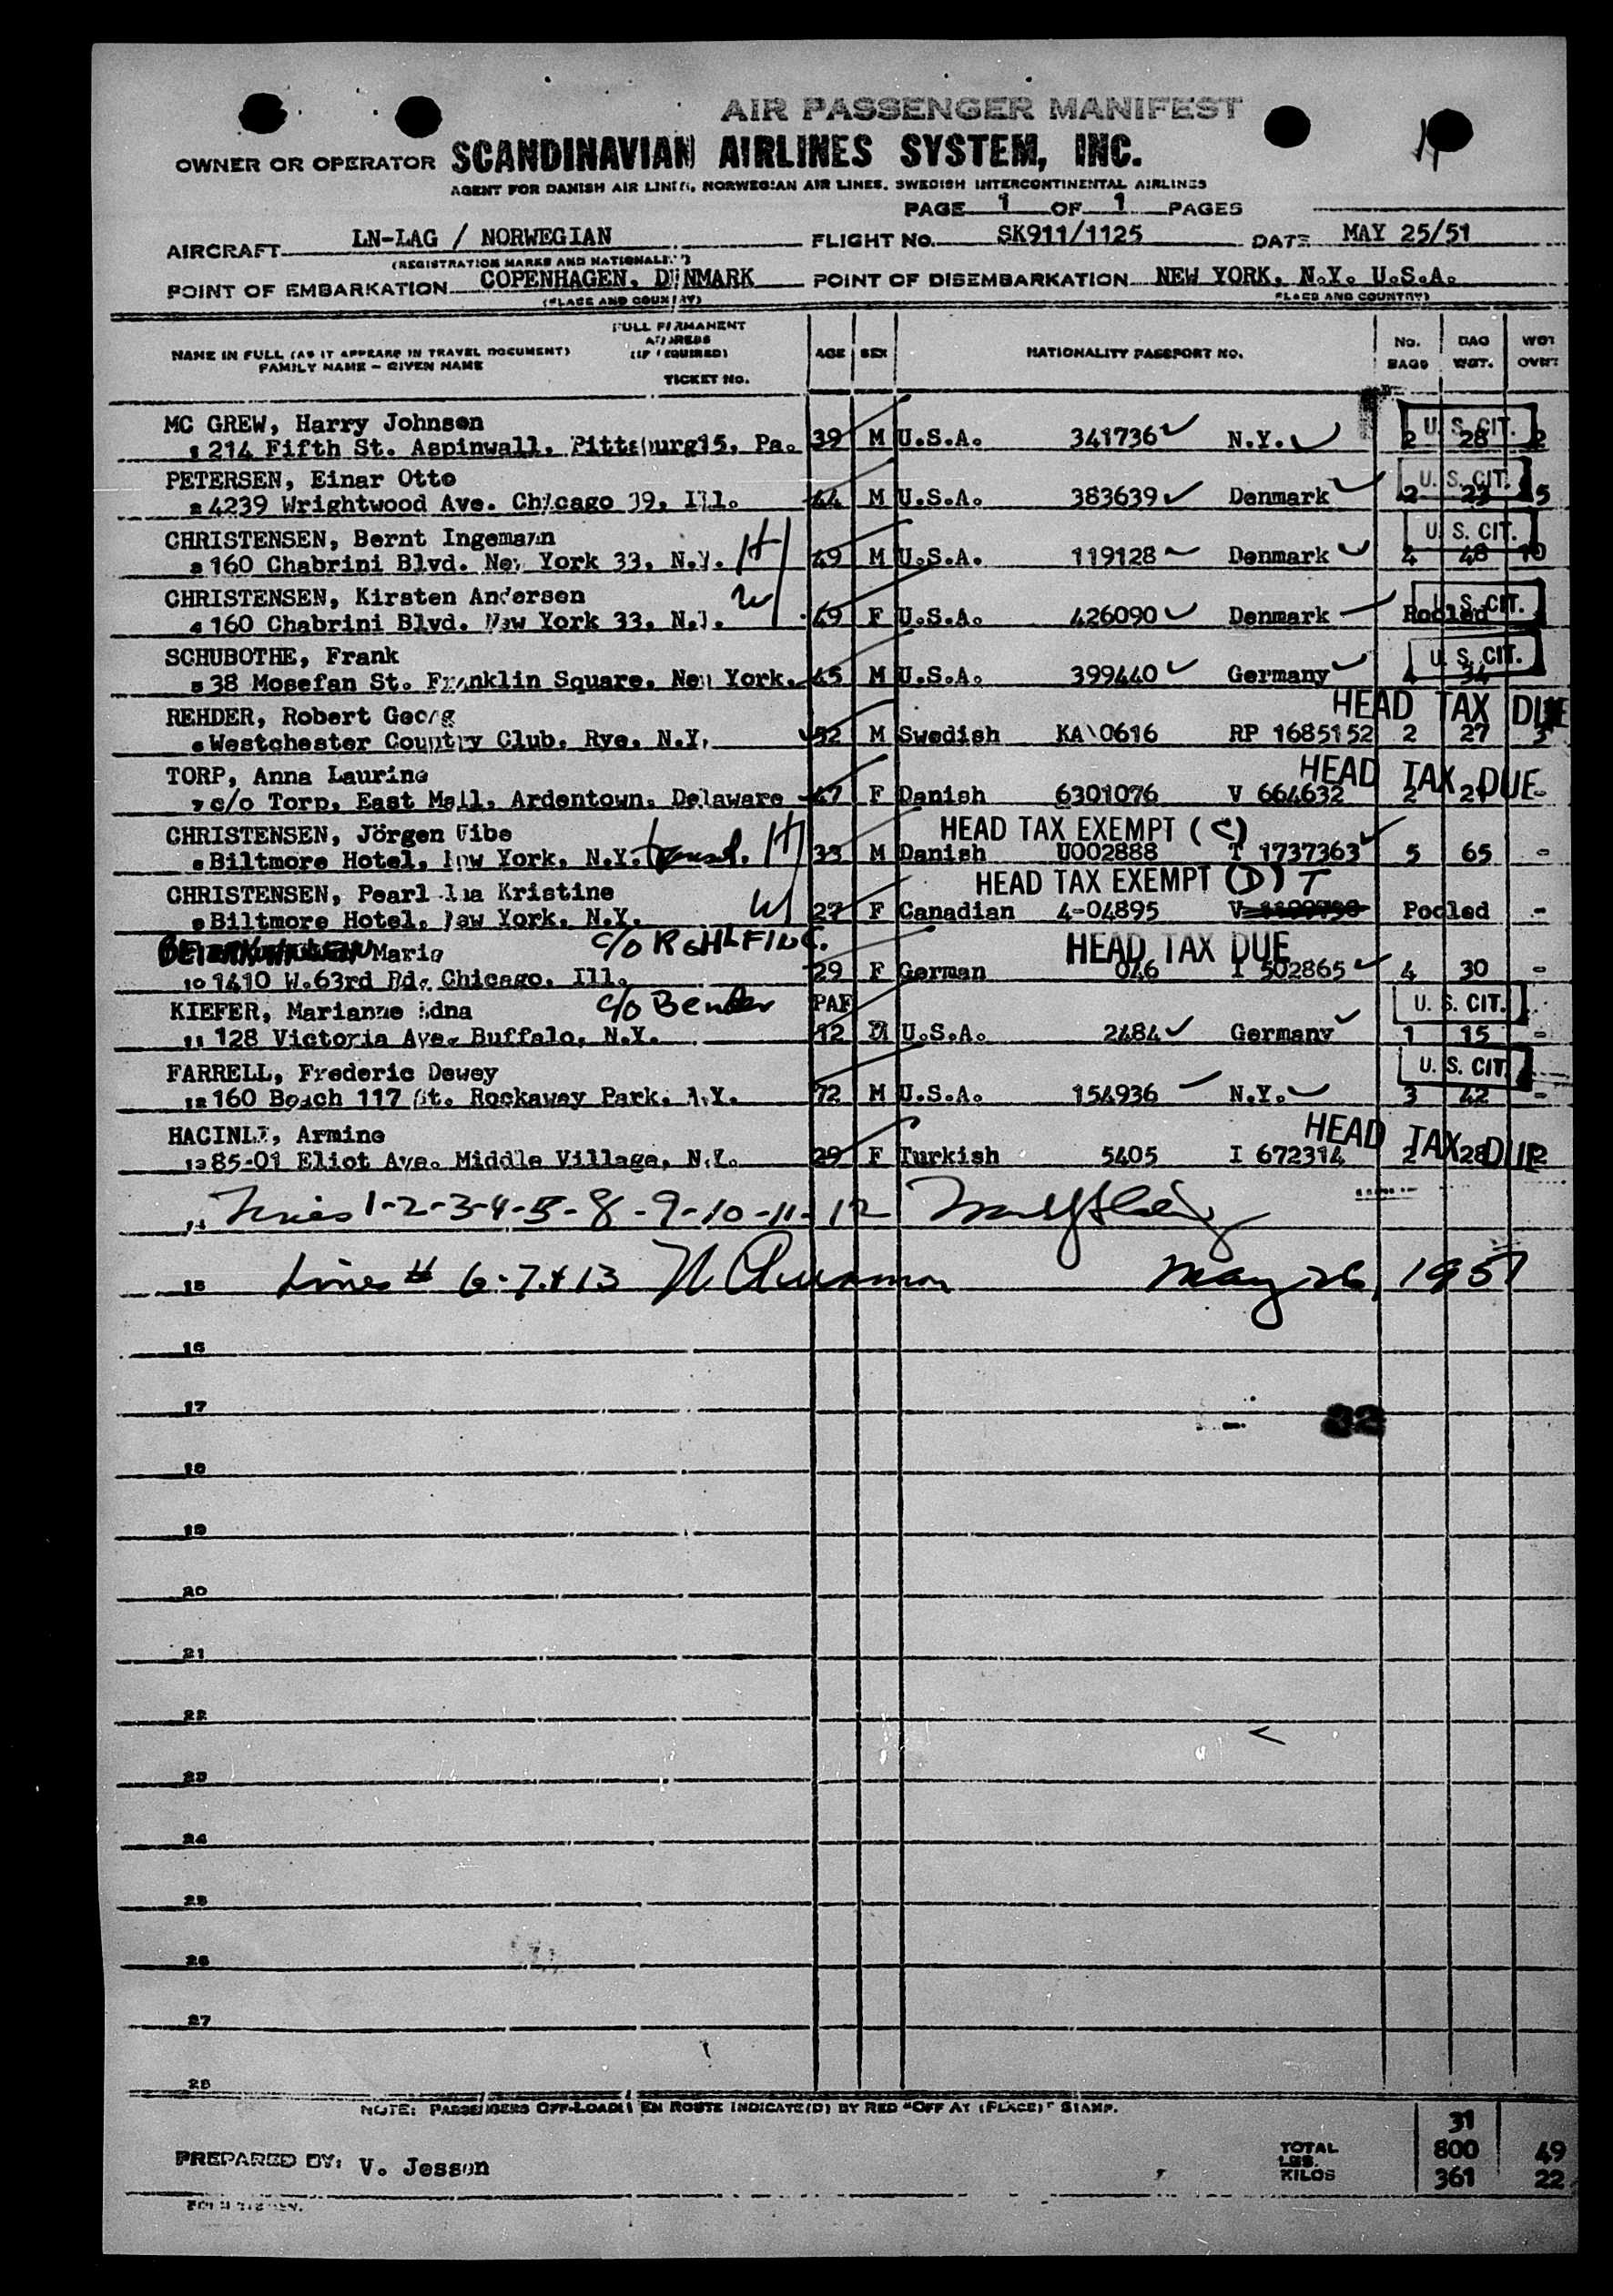 AIR PASSENGER MANIFEST
OWNER OR OPERATOR SCANDINAVIAN AIRLINES SYSTEM, INC.
AGENT FOR DANISH AIR LINES, NORWEGIAN AIR LINES, SWEDISH INTERCONTINENTAL AIRLINES
PAGE 1 OF 1 PAGES
AIRCRAFT LN-LAG / NORWEGIAN FLIGHT NO. SK911/1125 DATE MAY 25/51
(REGISTRATION MARKS AND NATIONALITY)
POINT OF EMBARKATION COPENHAGEN, DENMARK POINT OF DISEMBARKATION NEW YORK, N.Y. U.S.A.
(PLACE AND COUNTRY) (PLACE AND COUNTRY)
FULL PERMANENT
ADDRESS
NAME IN FULL (AS IT APPEARS IN TRAVEL DOCUMENT) (IF REQUIRED) AGE SEX NATIONALITY PASSPORT NO. No. BAG WGT
FAMILY NAME - GIVEN NAME BAGS WGT. OVR
TICKET NO.
MC GREW, Harry Johnson U. S. CIT.
1 214 Fifth St. Aspinwall, Pittsburg15, Pa. 39 M U.S.A. 341736 N.Y. 2 28 2
PETERSEN, Einar Otto U. S. CIT.
2 4239 Wrightwood Ave. Chicago 39, Ill. 44 M U.S.A. 383639 Denmark 2 23 5
CHRISTENSEN, Bernt Ingemann H U. S. CIT.
3 160 Chabrini Blvd. New York 33, N.Y. 49 M U.S.A. 119128 Denmark 4 48 10
CHRISTENSEN, Kirsten Andersen W U. S. CIT.
4 160 Chabrini Blvd. New York 33, N.Y. 49 F U.S.A. 426090 Denmark Pooled
SCHUBOTHE, Frank U. S. CIT.
5 38 Mosefan St. Franklin Square, New York. 45 M U.S.A. 399440 Germany 4 34
REHDER, Robert Georg HEAD TAX DUE
6 Westchester Country Club, Rye, N.Y. 52 M Swedish KA 0616 RP 1685152 2 27 3
TORP, Anna Laurine HEAD TAX DUE
7 c/o Torp, East Mall, Ardentown, Delaware 47 F Danish 6301076 V 664632 2 21 -
CHRISTENSEN, Jörgen Vibe HEAD TAX EXEMPT (C)
8 Biltmore Hotel, New York, N.Y. transl. H 33 M Danish U002888 T 1737363 5 65 -
CHRISTENSEN, Pearl Kristine W HEAD TAX EXEMPT (D) T
9 Biltmore Hotel, New York, N.Y. 27 F Canadian 4-04895 Pooled -
Marie HEAD TAX DUE
10 1410 W.63rd Rd. Chicago, Ill. 29 F German 046 I 502865 4 30 -
KIEFER, Marianne Edna c/o Bender U. S. CIT.
11 128 Victoria Ave. Buffalo, N.Y. 12 U.S.A. 2484 Germany 1 15 -
FARRELL, Frederic Dewey U. S. CIT.
12 160 Beach 117 St. Rockaway Park, N.Y. 72 M U.S.A. 154936 N.Y. 3 42 -
HACINLI, Armine HEAD TAX DUE
13 85-01 Eliot Ave. Middle Village, N.Y. 29 F Turkish 5405 I 672314 2 28 2
14 Lines 1-2-3-4-5-8-9-10-11-12
15 Lines # 6-7&13 May 26, 1951
16
17
32
18
19
20
21
22
23
24
25
26
27
28
NOTE: PASSENGERS OFF-LOADED EN ROUTE INDICATE(D) BY RED "OFF AT (PLACE)" STAMP.
31
PREPARED BY: V. Jessen TOTAL LBS. 800 49
KILOS 361 22